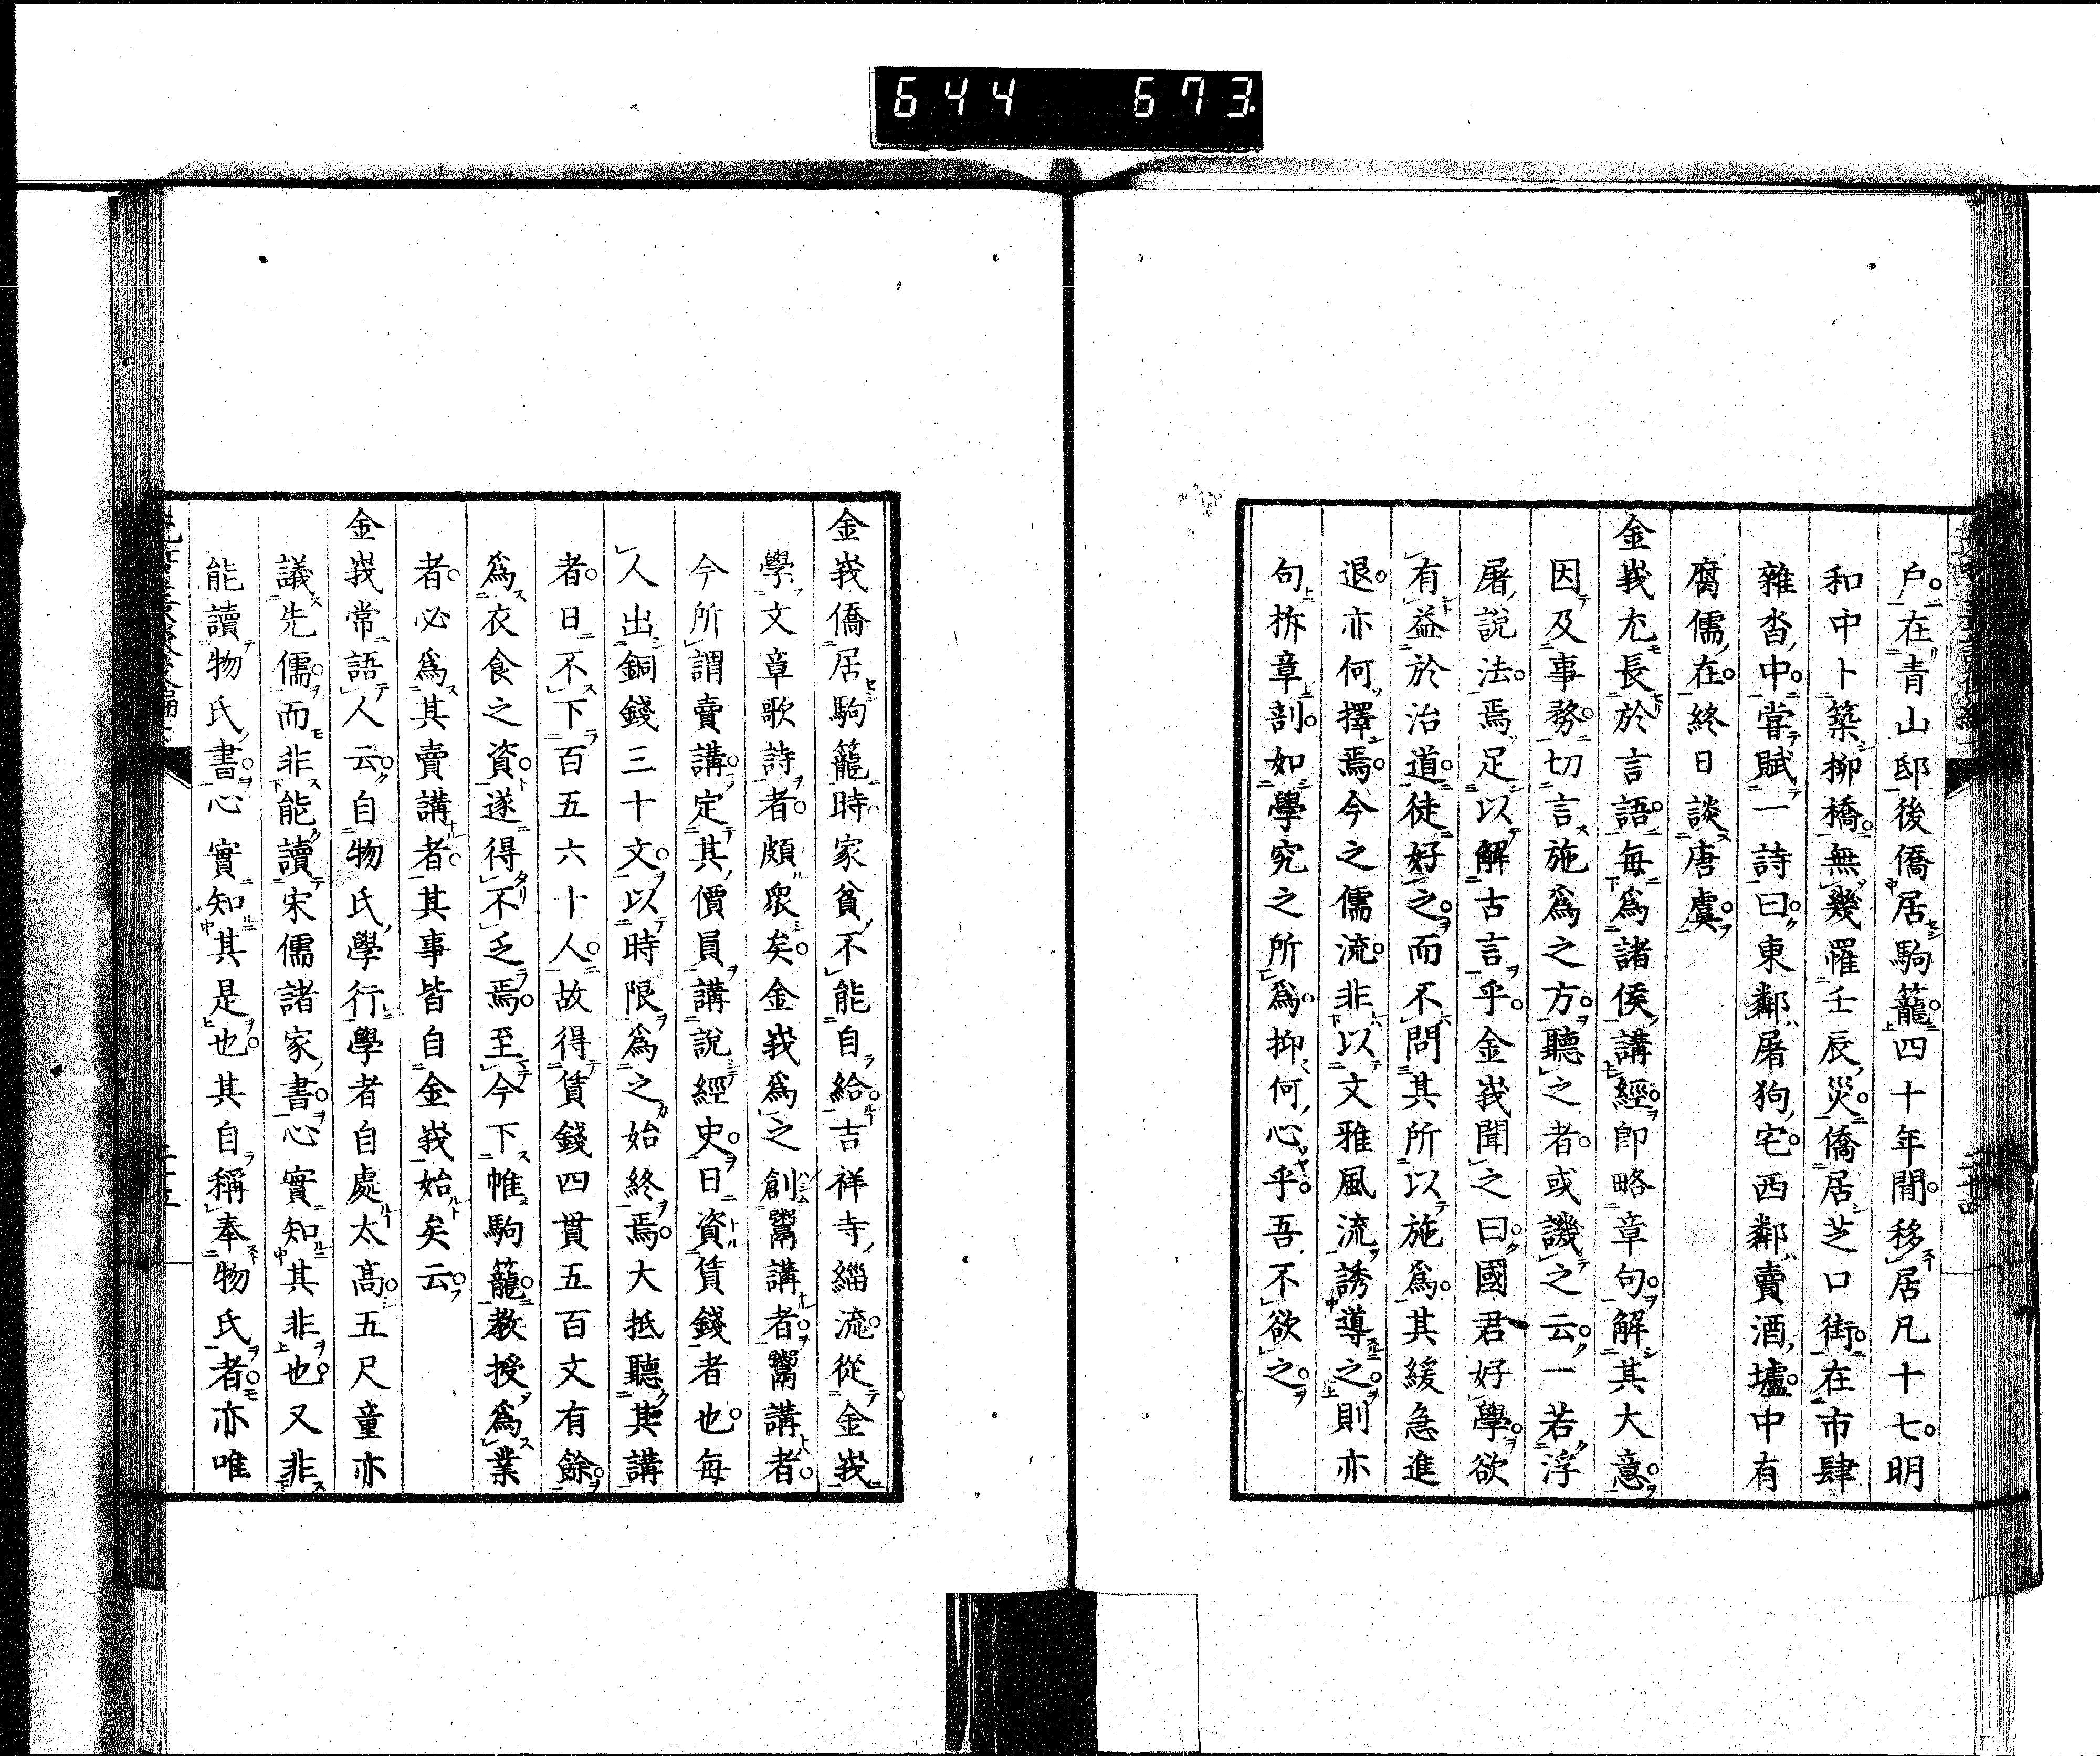 644 673
戸在青山邸後僑居駒籠四十年間移居凡十七明
和中卜築柳橋無幾罹壬辰災僑居芝口街在市肆
雜沓中嘗賦一詩曰東鄰屠狗宅西鄰賣酒壚中有
腐儒在終日談唐虞
金峩尤長於言語每爲諸侯講經卽略章句解其大意
因及事務切言施爲之方聽之者或譏之云一若浮
屠說法焉足以解古言乎金峩聞之曰國君好學欲
有益於治道徒好之而不問其所以施爲其緩急進
退亦何擇焉今之儒流非以文雅風流誘導之則亦
句柝章剖如學究之所爲抑何心乎吾不欲之
金峩僑居駒籠時家貧不能自給吉祥寺緇流從金峩
學文章歌詩者頗衆矣金峩爲之創鬻講者鬻講者
今所謂賣講定其價員講說經史日資賃錢者也每
人出銅錢三十文以時限爲之始終焉大抵聽其講
者日不下百五六十人故得賃錢四貫五百文有餘
爲衣食之資遂得不乏焉至今下帷駒籠教授爲業
者必爲其賣講者其事皆自金峩始矣云
金峩常語人云自物氏學行學者自處太高五尺童亦
議先儒而非能讀宋儒諸家書心實知其非也又非
能讀物氏書心實知其是也其自稱奉物氏者亦唯